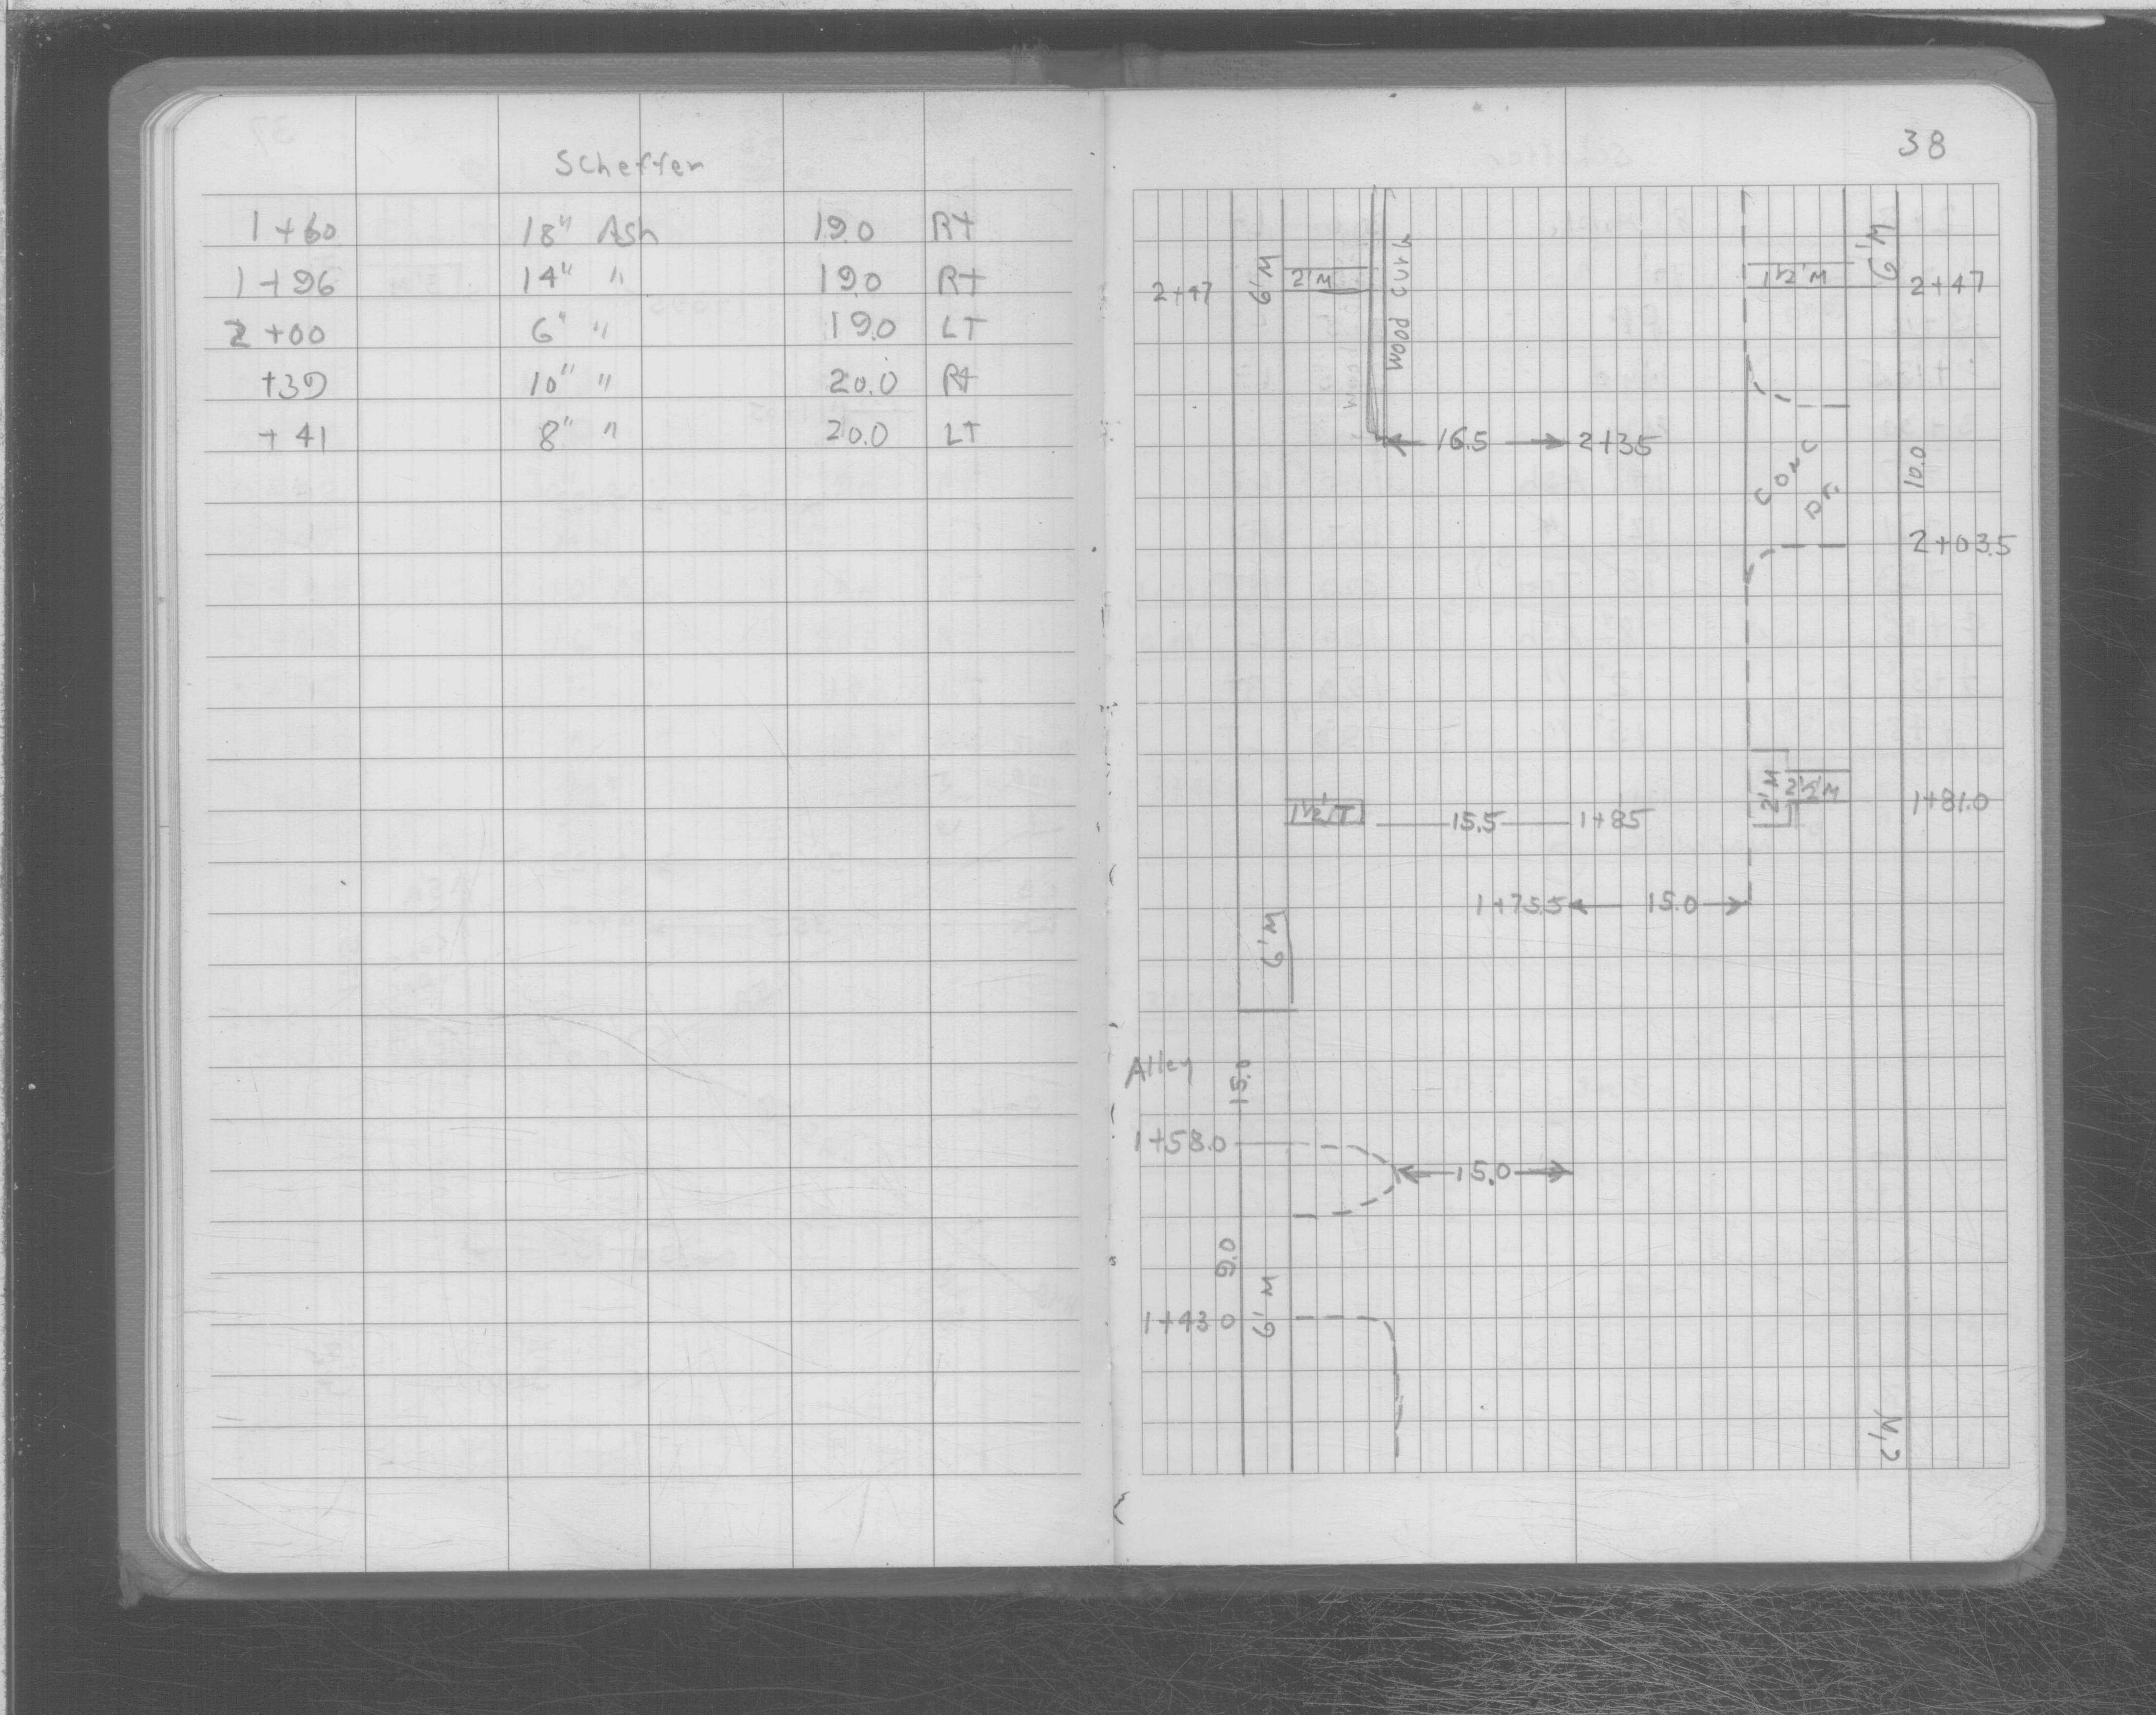 Scheffer
1+60 18" Ash 19.0 Rt
1+96 14" " 19.0 Rt
2+00 6" " 19.0 LT
+39 10" " 20.0 Rt
+41 8" " 20.0 LT
38
2+47 6'M 2'M Wood Curb 1½'M 6'M 2+47
16.5 2+35
Conc Dr. 10.0
2+03.5
2'M 2½'M 1+81.0
1½'T 15.5 1+85
1+75.5 15.0
6'M
Alley 15.0
1+58.0
15.0
9.0
6'M
1+43.0